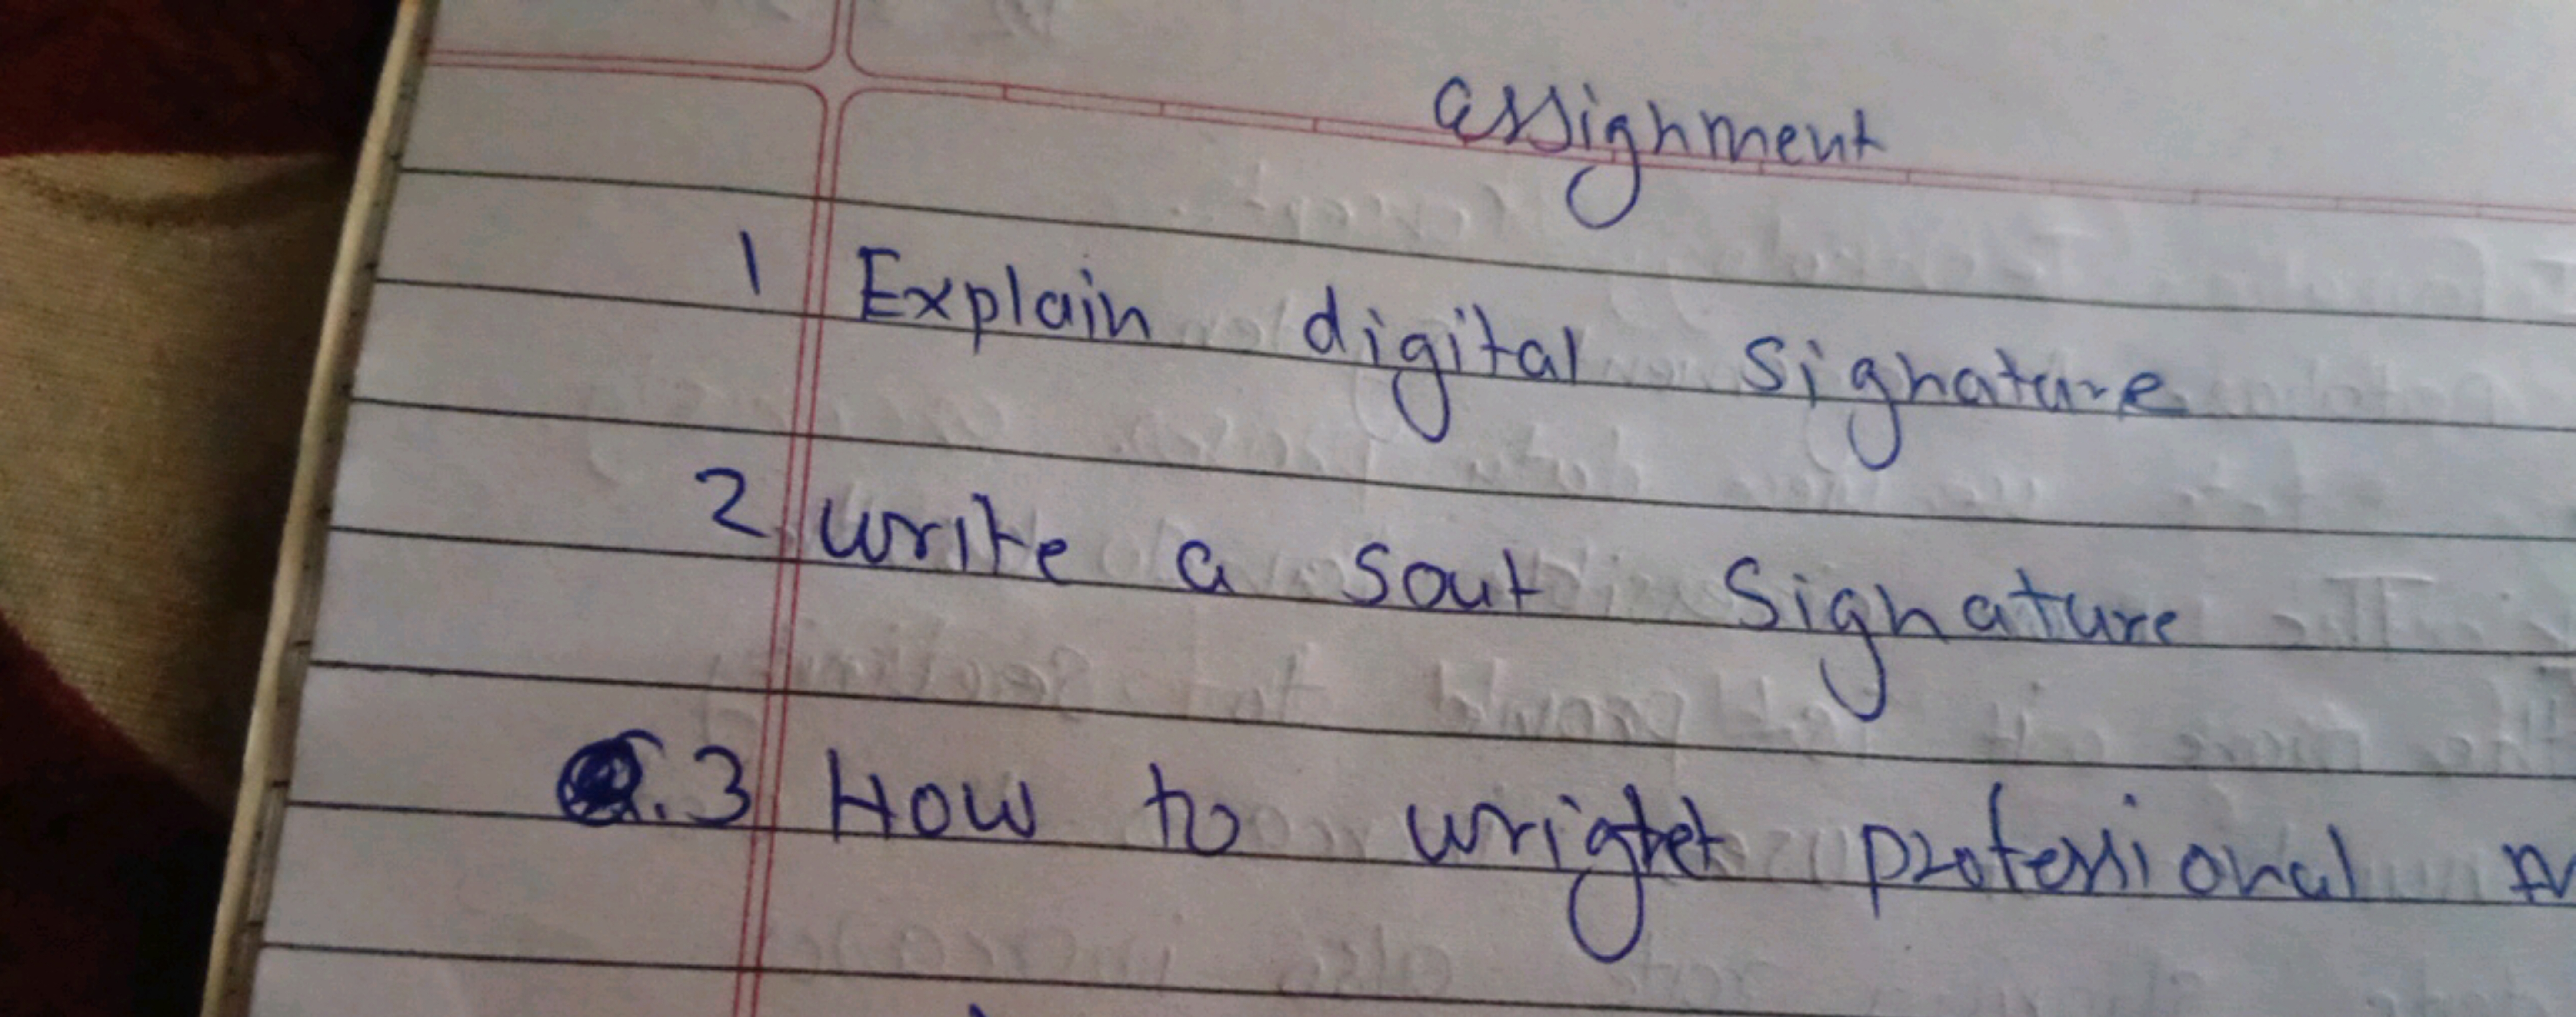 assighment
1 Explain digital signature
2 write a sout signature
Q.3 How to wrightet professional